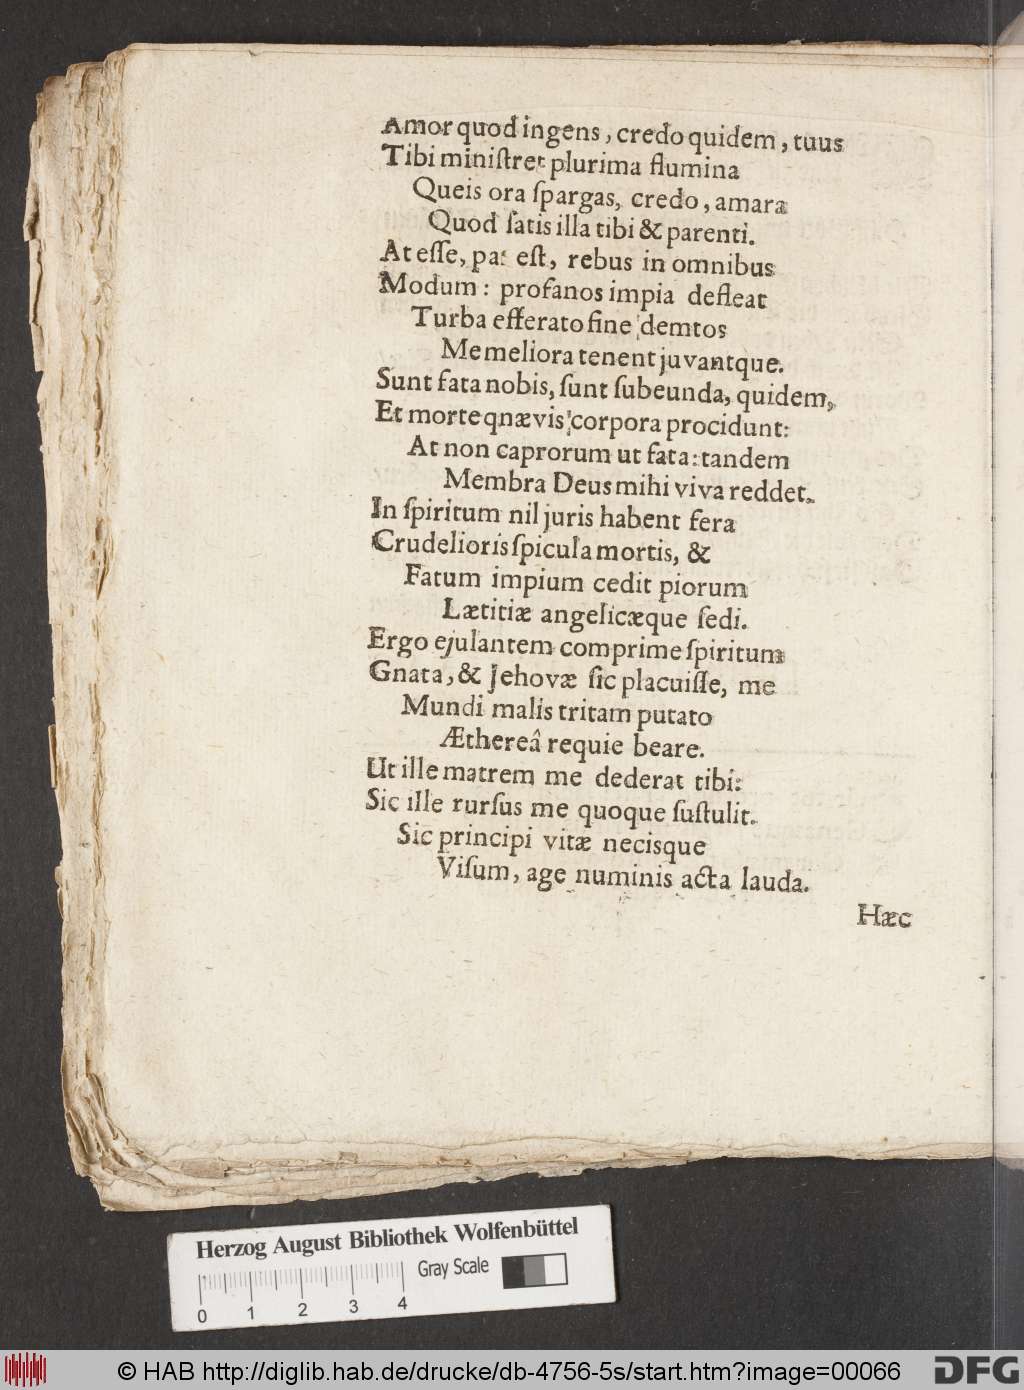 Amor quod ingens, credo quidem, tuus
Tibi miniſtret plurima flumina
Queis ora ſpargas, credo, amara
Quod ſatis illa tibi & parenti.
At eſſe, par eſt, rebus in omnibus
Modum: profanos impia defleat
Turba efferato fine demtos
Me meliora tenent juvantque.
Sunt fata nobis, ſunt ſubeunda, quidem,
Et morte qnævis corpora procidunt:
At non caprorum ut fata: tandem
Membra Deus mihi viva reddet.
In ſpiritum nil juris habent fera
Crudelioris ſpicula mortis, &
Fatum impium cedit piorum
Lætitiæ angelicæque ſedi.
Ergo ejulantem comprime ſpiritum
Gnata, & Jehovæ ſic placuiſſe, me
Mundi malis tritam putato
Æthereâ requie beare.
Ut ille matrem me dederat tibi:
Sic ille rurſus me quoque ſuſtulit.
Sic principi vitæ necisque
Viſum, age numinis acta lauda.
Hæc
Herzog August Bibliothek Wolfenbüttel
Gray Scale
0 1 2 3 4
© HAB http://diglib.hab.de/drucke/db-4756-5s/start.htm?image=00066
DFG